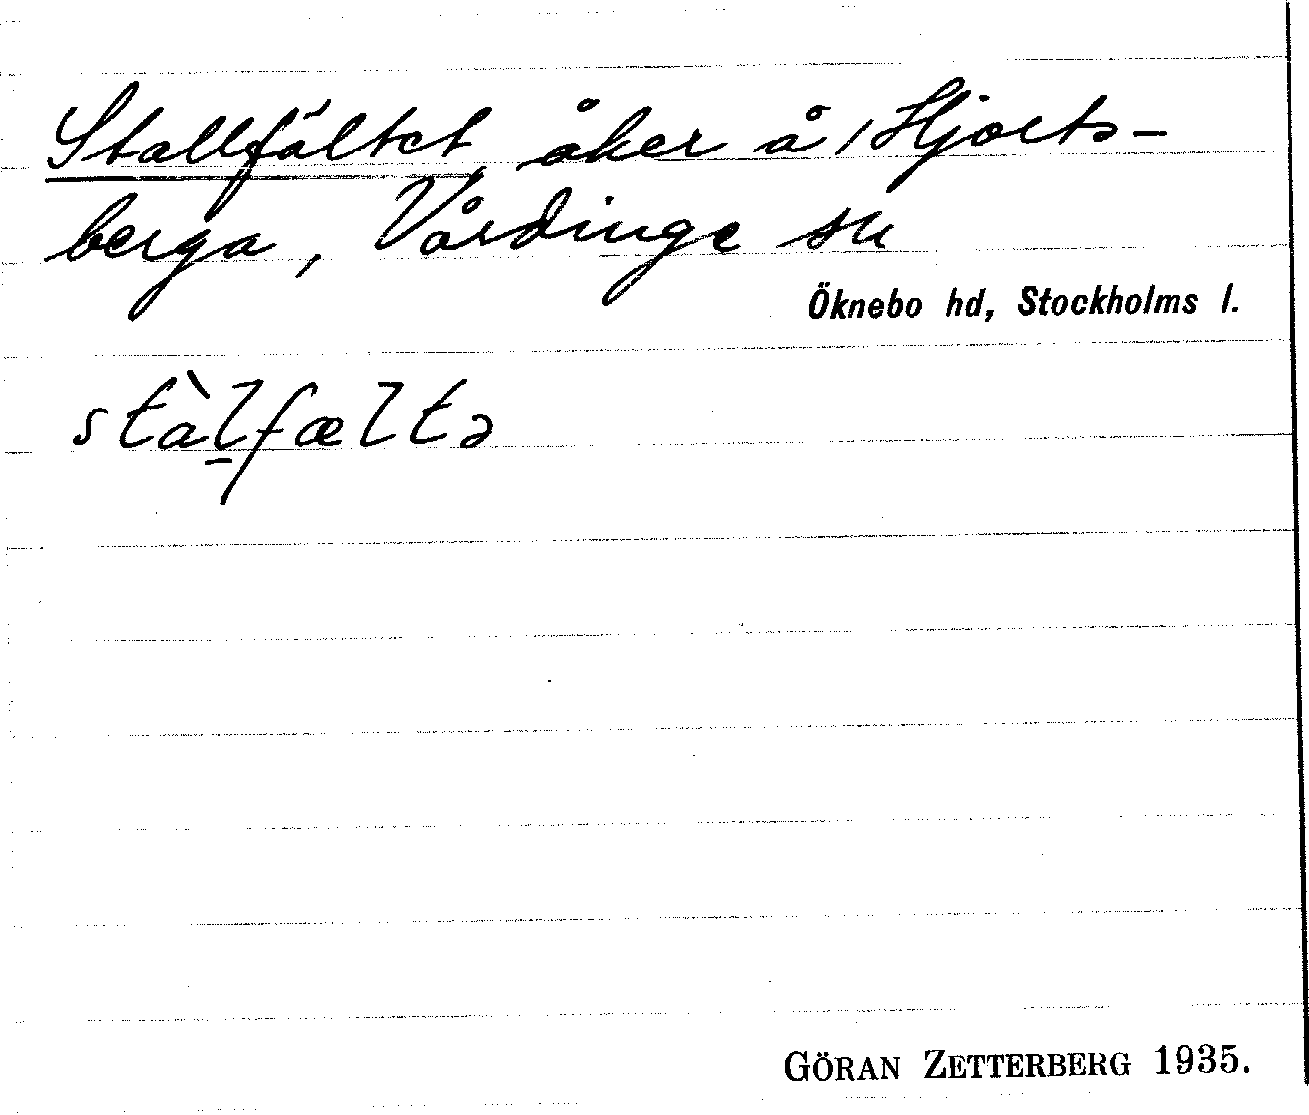 Stallfältet, åker å /Hjorts-
berga, Vårdinge sn
Öknebo hd, Stockholms l.
stàl̠fæltə
GÖRAN ZETTERBERG 1935.